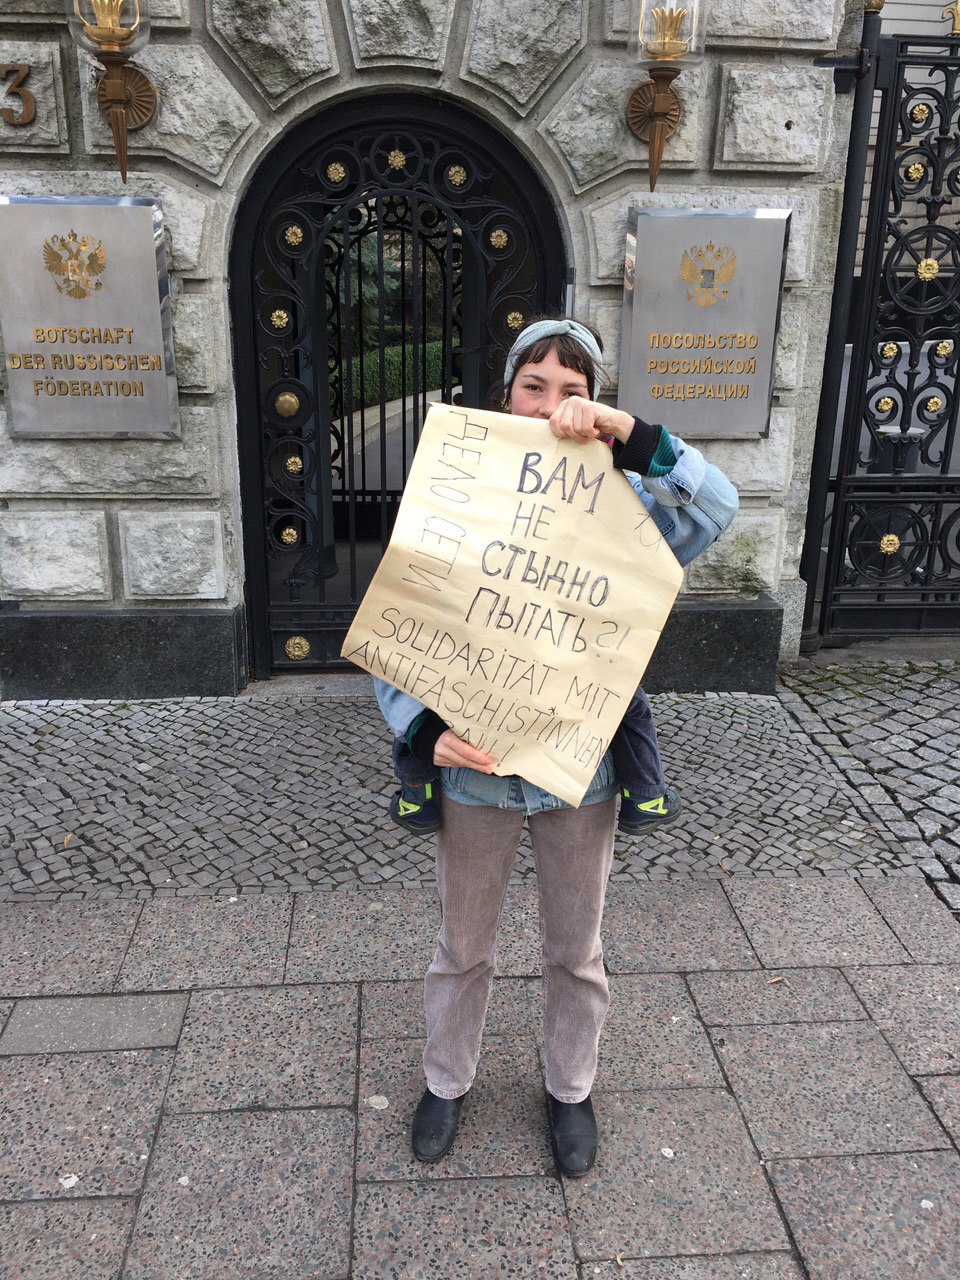 3
BOTSCHAFT
DER RUSSISCHEN
FÖDERATION
ПОСОЛЬСТВО
РОССИЙСКОЙ
ФЕДЕРАЦИИ
ДЕЛО СЕТИ
ВАМ
НЕ
СТЫДНО
ПЫТАТЬ?!
SOLIDARITÄT MIT
ANTIFASCHIST*INNEN